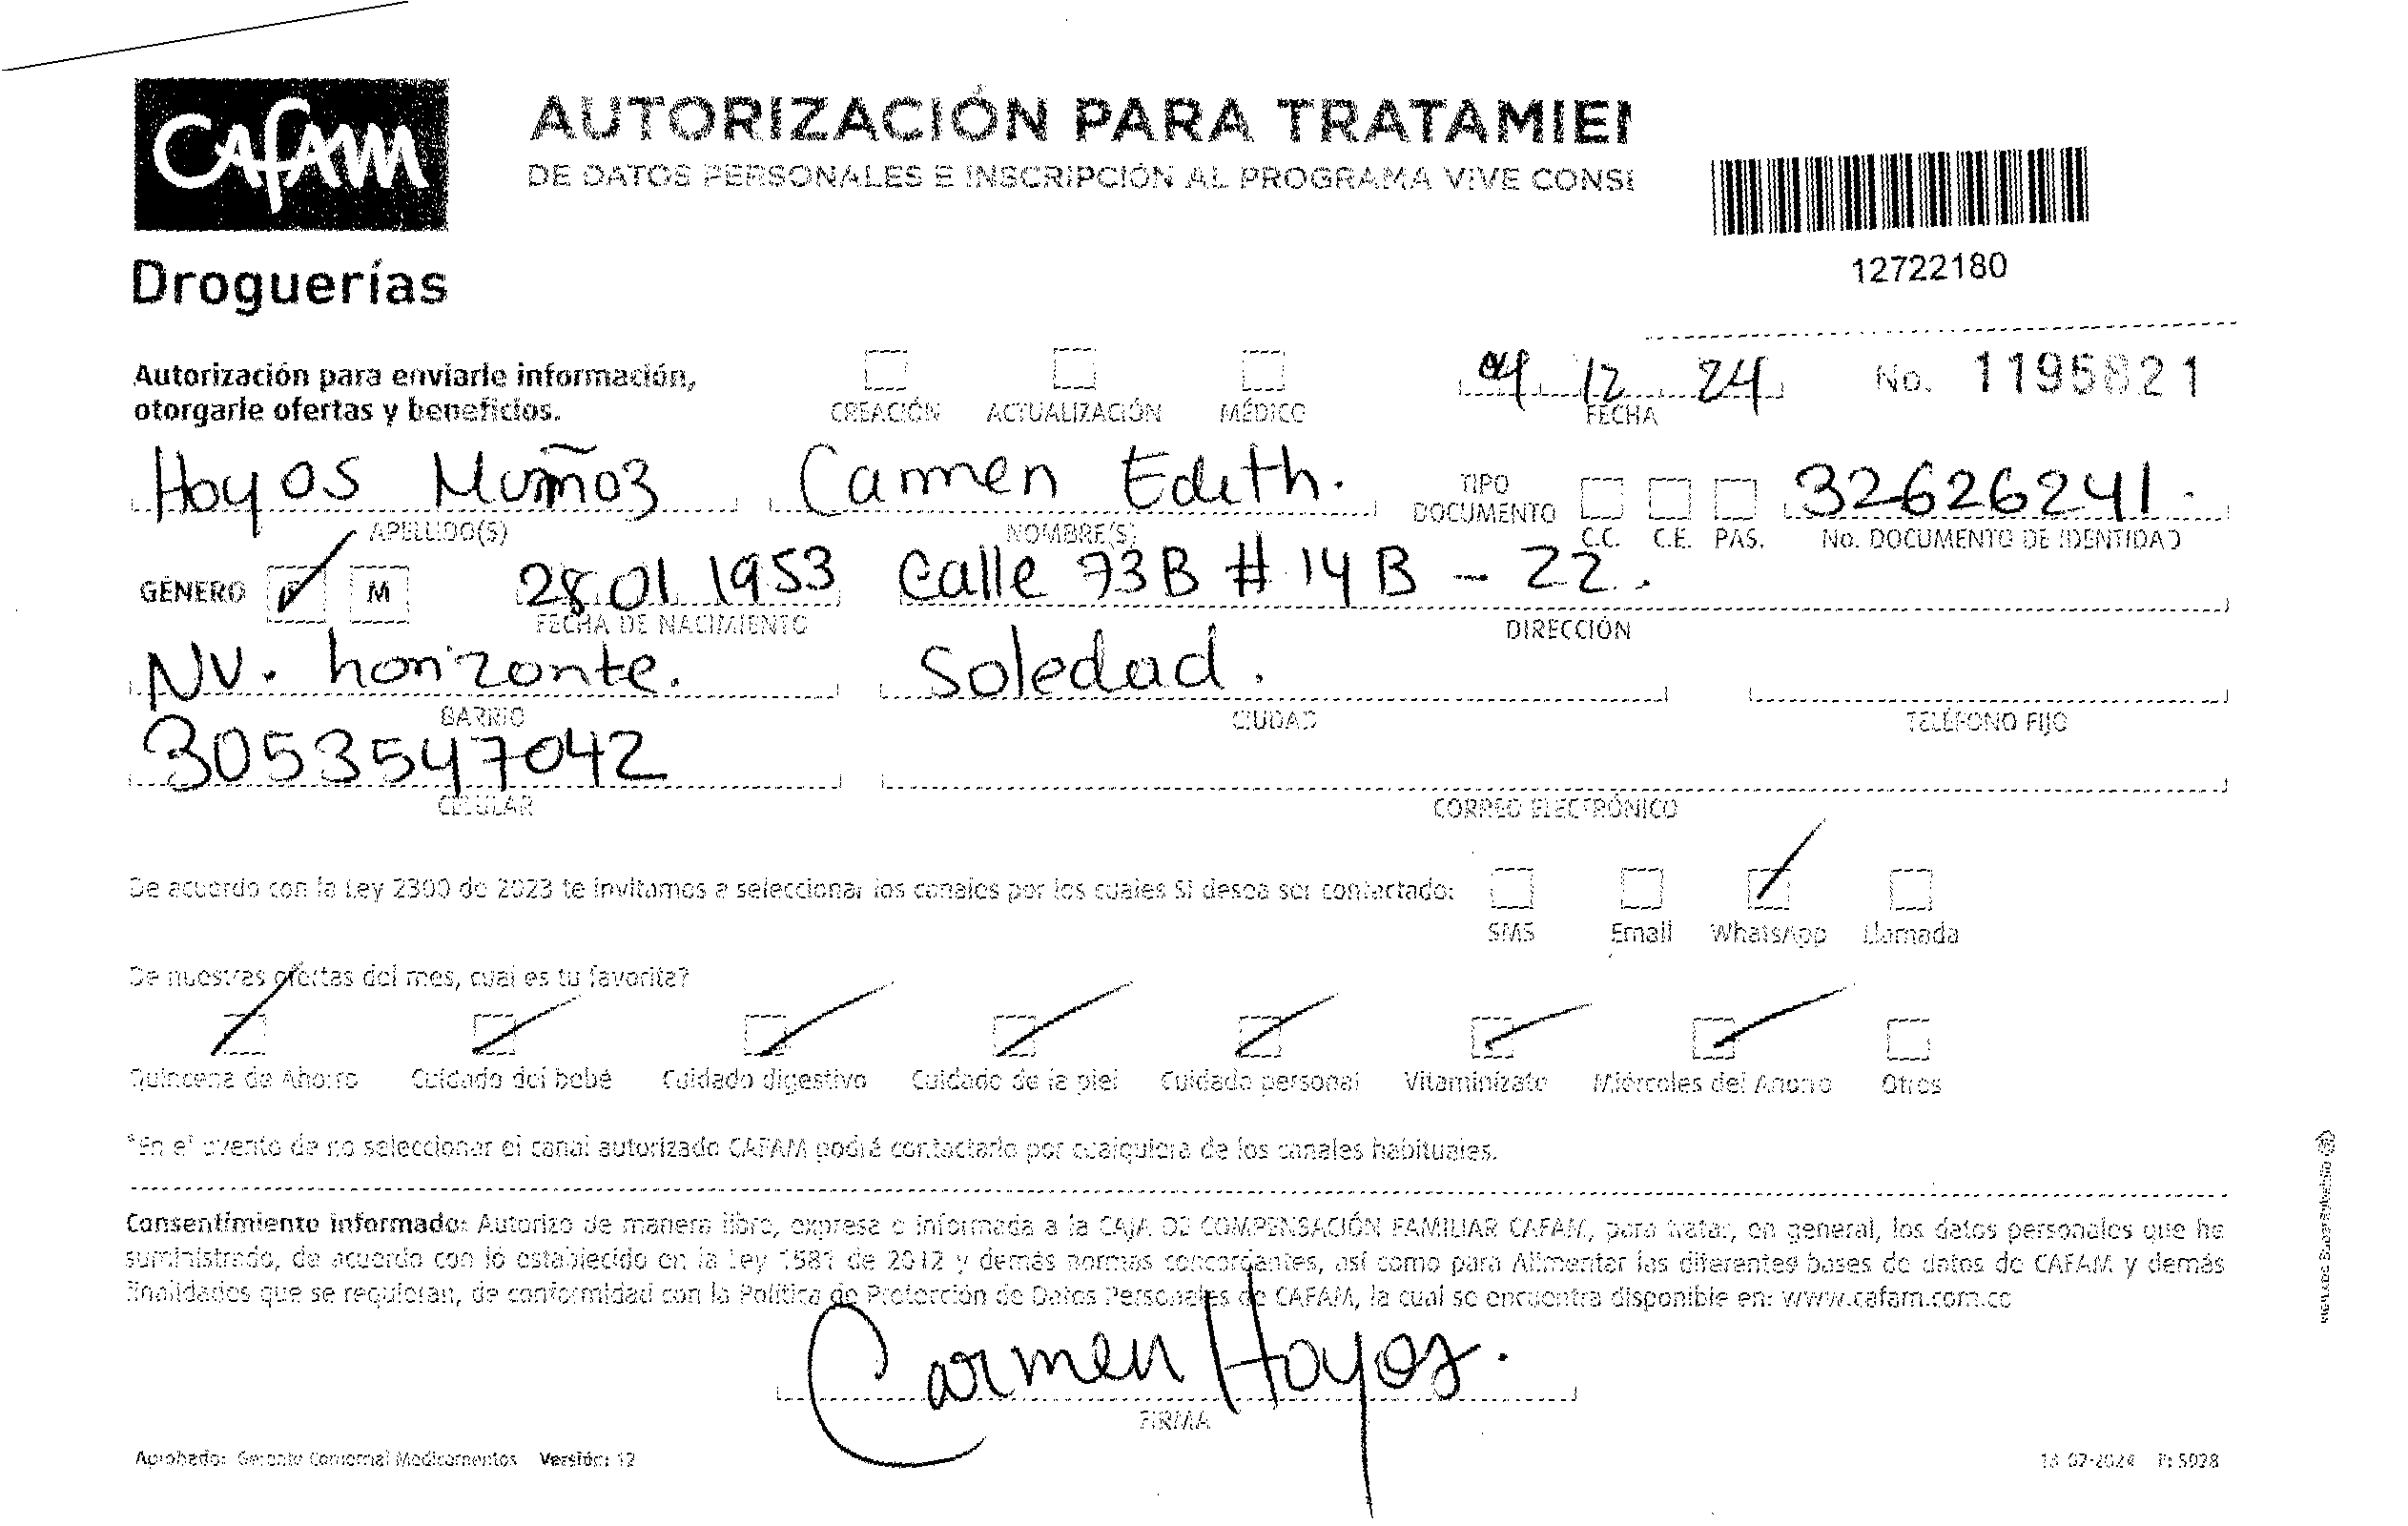 CAFAM
Droguerías
AUTORIZACIÓN PARA TRATAMIEN
DE DATOS PERSONALES E INSCRIPCIÓN AL PROGRAMA VIVE CONSE
12722180
Autorización para enviarle información,
otorgarle ofertas y beneficios.
CREACIÓN ACTUALIZACIÓN MÉDICO
04 12 24
FECHA
No. 1195821
Hoyos Muñoz Carmen Edith. 32626241.
APELLIDO(S) NOMBRE(S) TIPO DOCUMENTO C.C. C.E. PAS. No. DOCUMENTO DE IDENTIDAD
GÉNERO F M 28 01 1953 Calle 73B # 14B - 22.
FECHA DE NACIMIENTO DIRECCIÓN
NV. horizonte. Soledad.
BARRIO CIUDAD TELÉFONO FIJO
3053547042
CELULAR CORREO ELECTRÓNICO
De acuerdo con la Ley 2300 de 2023 te invitamos a seleccionar los canales por los cuales SI desea ser contactado:
SMS Email WhatsApp Llamada
De nuestras ofertas del mes, cual es tu favorita?
Quincena de Ahorro Cuidado del bebé Cuidado digestivo Cuidado de la piel Cuidado personal Vitaminízate Miércoles del Ahorro Otros
*En el evento de no seleccionar el canal autorizado CAFAM podrá contactarlo por cualquiera de los canales habituales.
Consentimiento informado: Autorizo de manera libre, expresa e informada a la CAJA DE COMPENSACIÓN FAMILIAR CAFAM, para tratar, en general, los datos personales que he
suministrado, de acuerdo con lo establecido en la Ley 1581 de 2012 y demás normas concordantes, así como para Alimentar las diferentes bases de datos de CAFAM y demás
finalidades que se requieran, de conformidad con la Política de Protección de Datos Personales de CAFAM, la cual se encuentra disponible en: www.cafam.com.co
Carmen Hoyos.
FIRMA
Aprobado: Gerente Comercial Medicamentos Versión: 12
13-02-2024 P: 5928